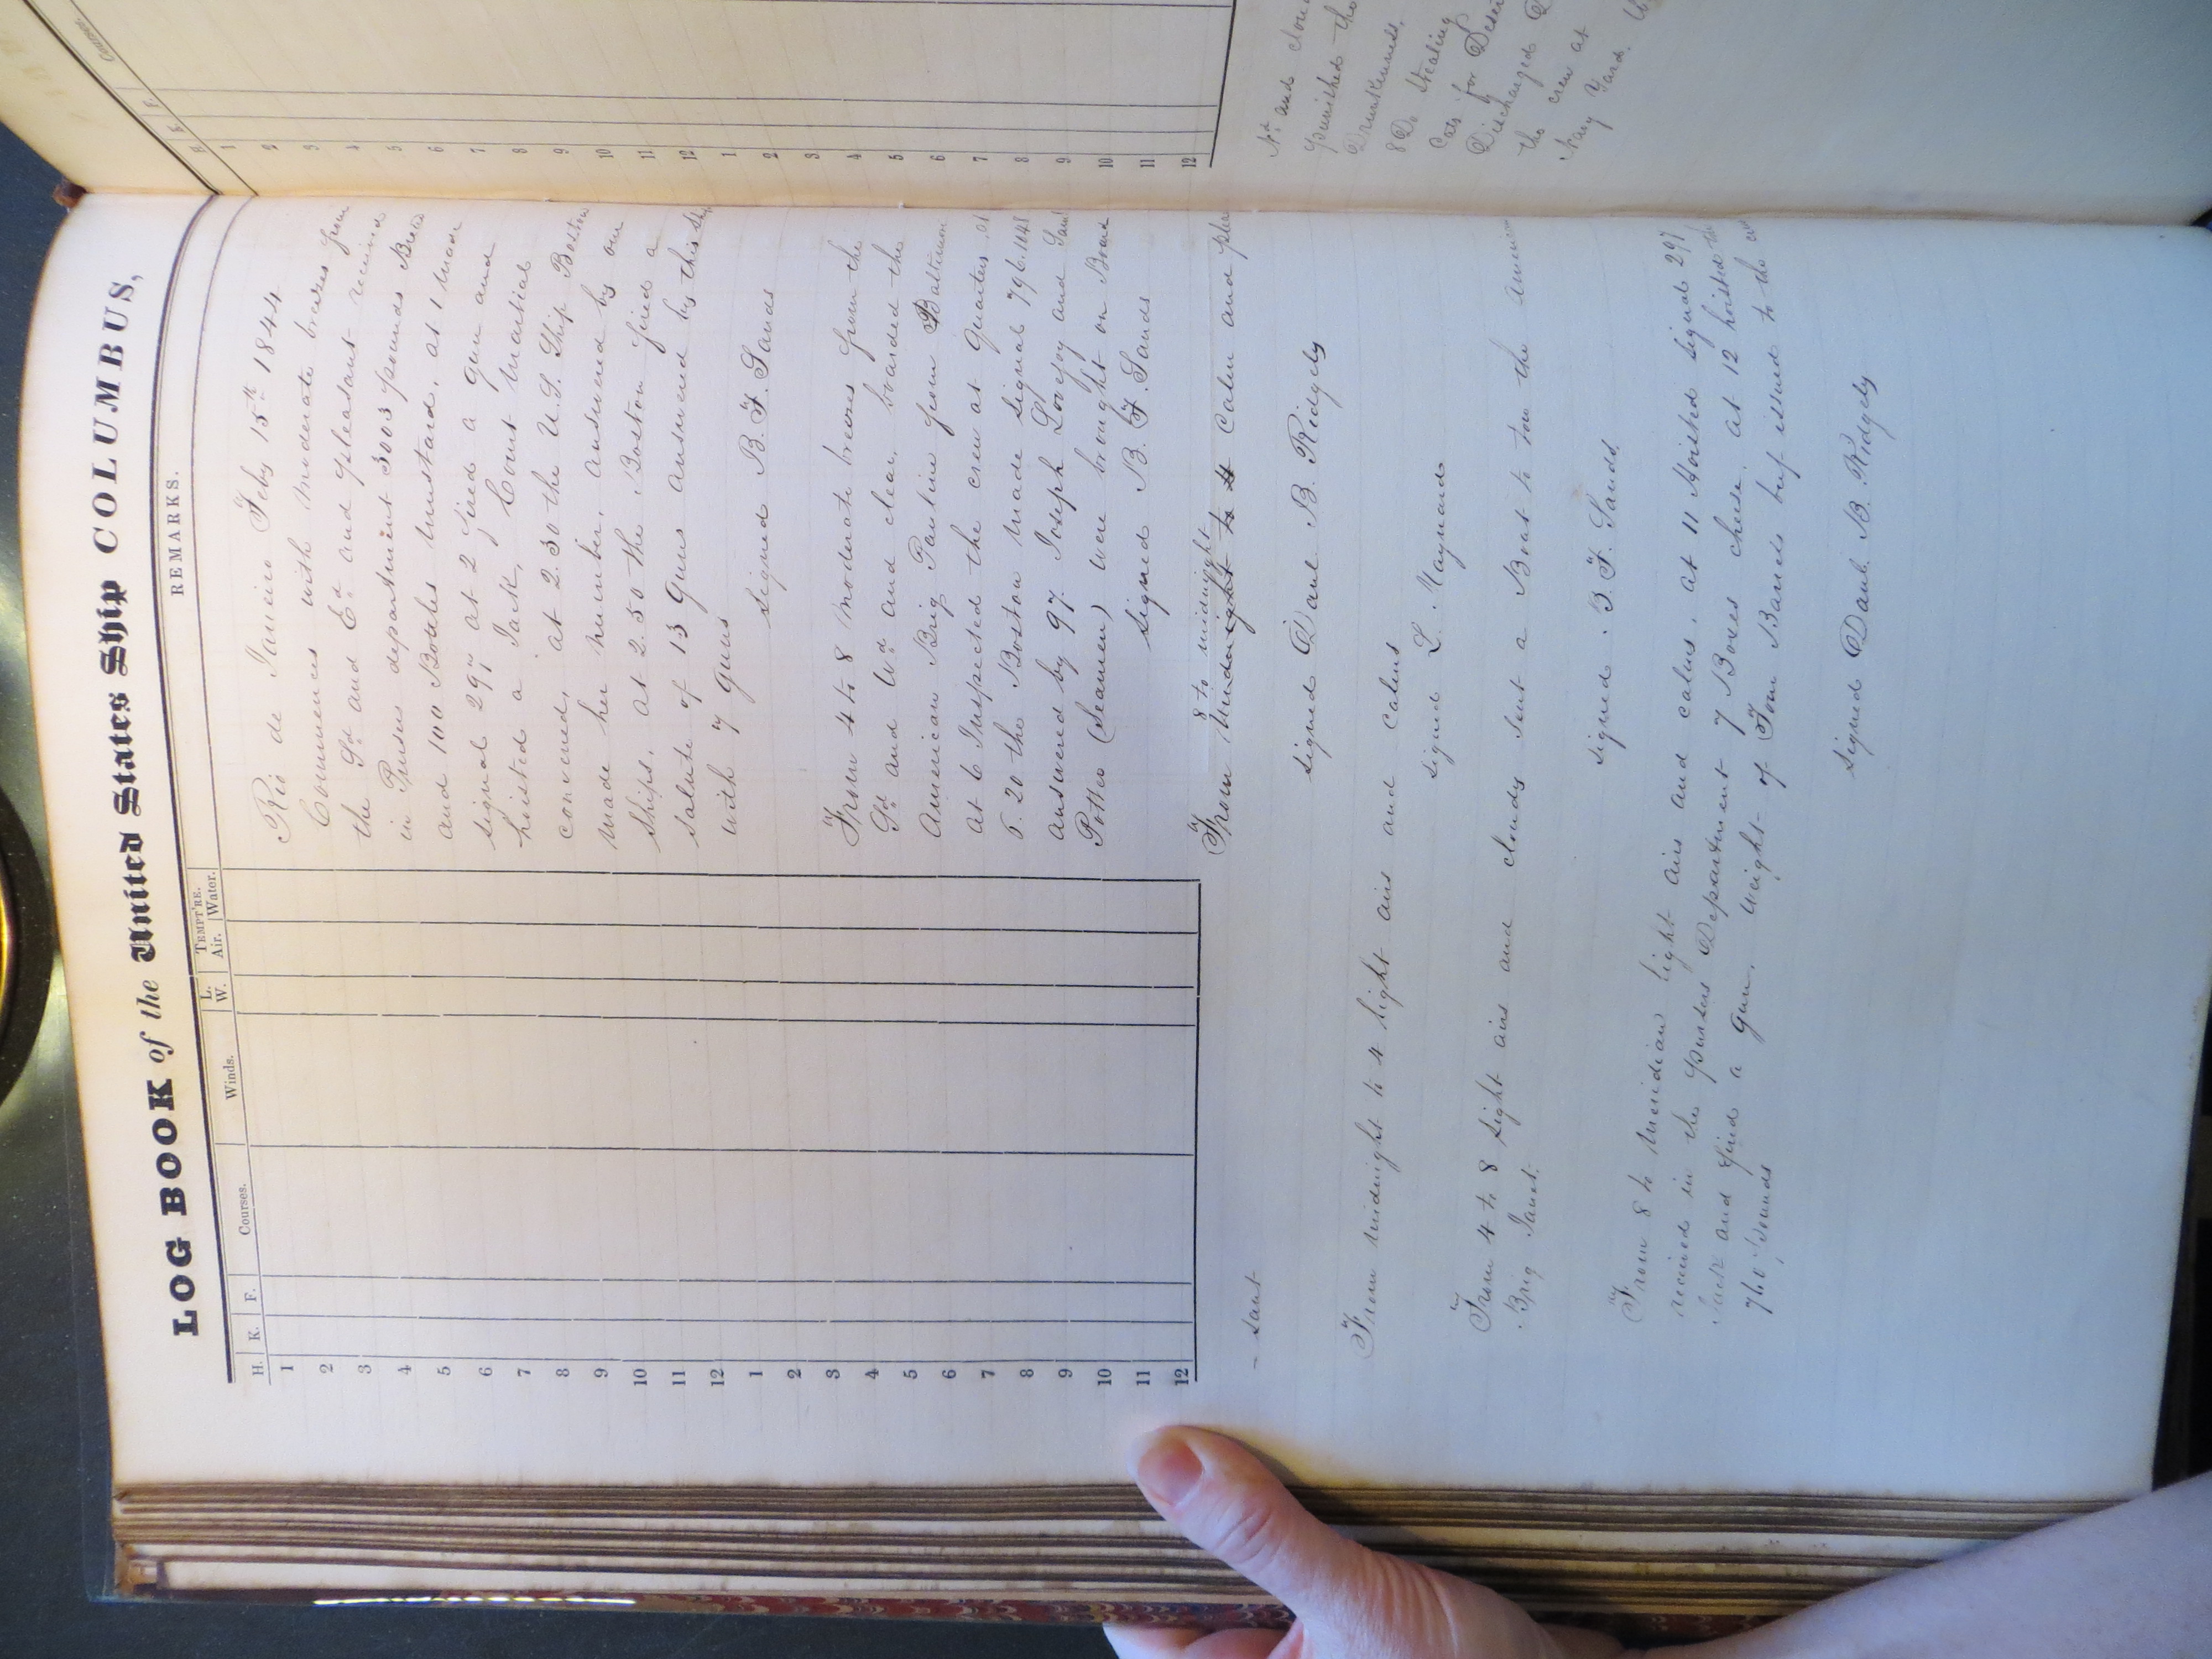 LOG BOOK of the United States Ship COLUMBUS,
H. K. F. Courses. Winds. L. W. TEMPT'RE. Air. Water. REMARKS.
1
2
3
4
5
6
7
8
9
10
11
12
1
2
3
4
5
6
7
8
9
10
11
12
Rio de Janeiro Feby 15th 1844
Commences with moderate breezes from
the Sd and Ed and pleasant received
in Pursers department 3003 pounds Bread
and 100 Bottles Mustard, at 1 made
signal 297 at 2 fired a gun and
hoisted a Jack, Court Martial
convened, at 2.30 the U.S. Ship Boston
made her number, answered by our
Ships, at 2.50 the Boston fired a
salute of 13 Guns answered by this Ship
with 7 Guns
signed B. F. Sands
From 4 to 8 Moderate breezes from the
Sd and Wd and clear, boarded the
American Brig Pauline from Baltimore
at 6 Inspected the crew at Quarters at
6.20 the Boston made signal 796.1048
answered by 97. Joseph Lovejoy and
Potter (Seamen) were brought on Board
signed B. F. Sands
8 to midnight
From Midnight to 4 Calm and plea
- sant
signed Danl B. Ridgely
From midnight to 4 light airs and calms
signed L. Maynard
From 4 to 8 light airs and cloudy sent a Boat to tow the American
Brig Janet.
signed B. F. Sands
From 8 to Meridian light airs and calms, at 11 Hoisted signal 297
received in the Pursers Department 7 Boxes cheese, at 12 hoisted the
Jack and fired a Gun, weight of Four Barrels beef issued to the
760 pounds
signed Danl. B. Ridgely
H. K. F. Courses
1
2
3
4
5
6
7
8
9
10
11
12
1
2
3
4
5
6
7
8
9
10
11
12
Nd and
punished the
Drunkenness,
8 Do Stealing
Cats for
Discharged
the crew at
Navy Yard.